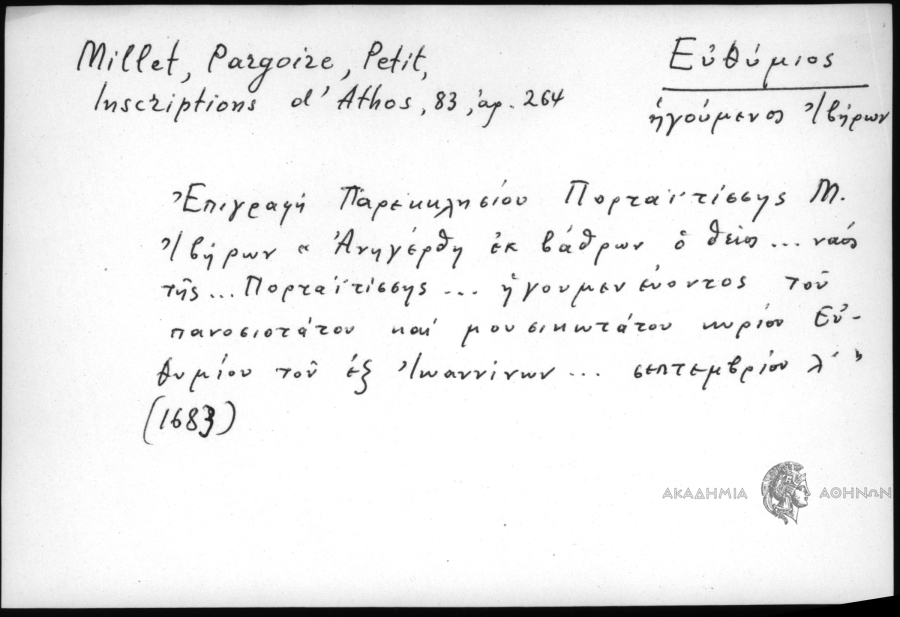 Millet, Pargoire, Petit,
Inscriptions d'Athos, 83, ἀρ. 264
Εὐθύμιος
ἡγούμενος Ἰβήρων
Ἐπιγραφή Παρεκκλησίου Πορταϊτίσσης Μ.
Ἰβήρων « Ἀνηγέρθη ἐκ βάθρων ὁ θεῖος ... ναός
τῆς ... Πορταϊτίσσης ... ἡγουμενεύοντος τοῦ
πανοσιοτάτου καί μουσικωτάτου κυρίου Εὐ-
θυμίου τοῦ ἐξ Ἰωαννίνων ... σεπτεμβρίου λ´ »
(1683)
ΑΚΑΔΗΜΙΑ ΑΘΗΝΩΝ